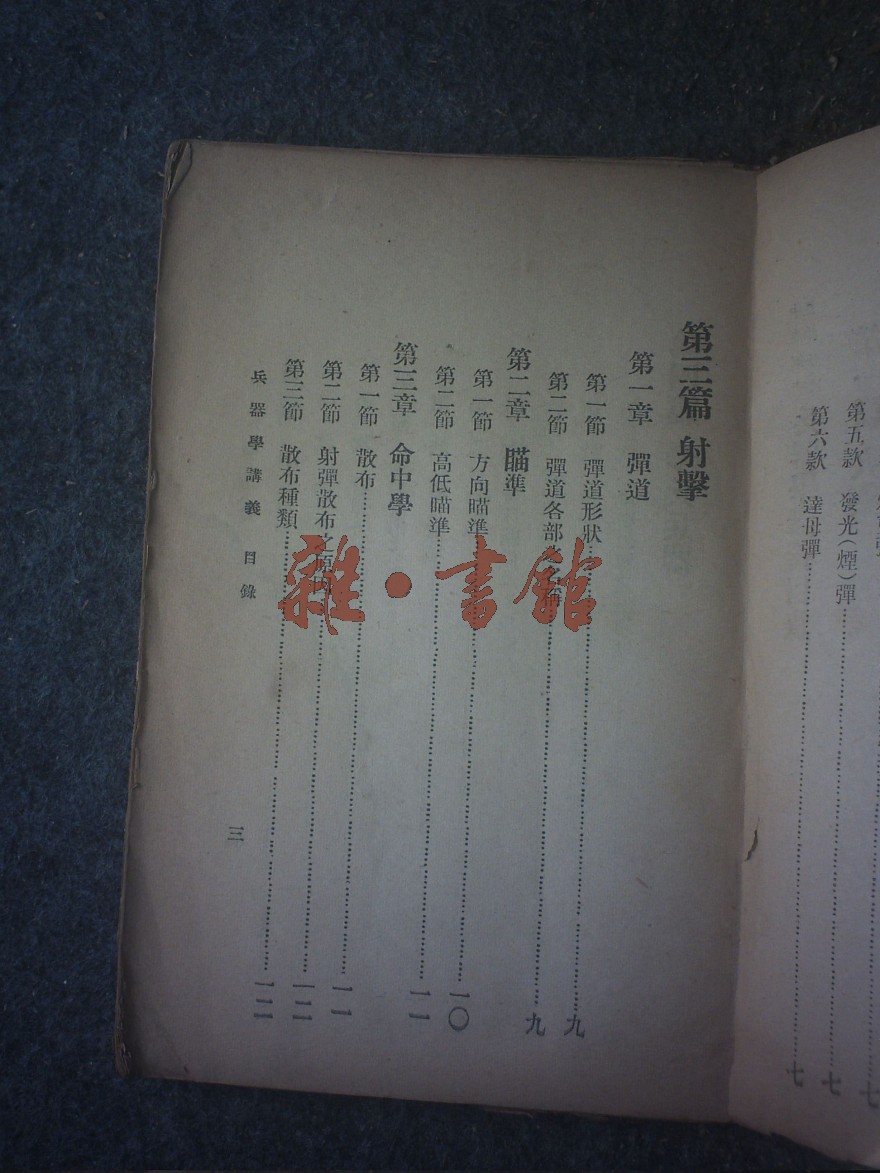 第五款 發光(煙)彈……七
第六款 達母彈……七
第三篇 射擊
第一章 彈道
第一節 彈道形狀……九
第二節 彈道各部之名稱……九
第二章 瞄準
第一節 方向瞄準……一〇
第二節 高低瞄準……一一
第三章 命中學
第一節 散布……一一
第二節 射彈散布之原因……一二
第三節 散布種類……一二
兵器學講義 目錄
三
雜·書館